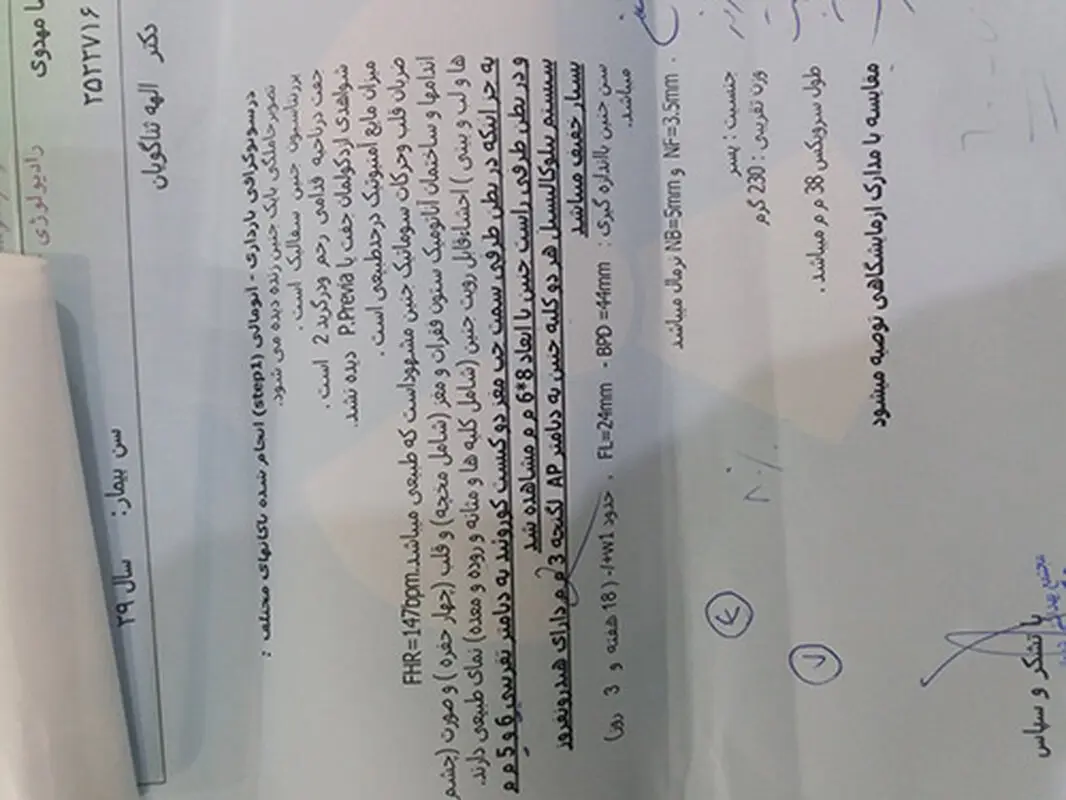 ا مهدوی
رادیولوژی
۲۵۲۲۷۱۶
دکتر الهه ثناگویان
سن بیمار: سال ۲۹
درسونوگرافی بارداری - انومالی (step1) انجام شده باکاتهای مختلف :
تصویرحاملگی بایک جنین زنده دیده می شود.
پرزنتاسیون جنین سفالیک است .
جفت درناحیه قدامی رحم ودرگرید 2 است .
شواهدی ازدکولمان جفت یا P.Previa دیده نشد.
میزان مایع آمنیوتیک درحدطبیعی است .
ضربان قلب وحرکات سوماتیک جنین مشهوداست که طبیعی میباشد.FHR=147bpm
اندامها و ساختمان آناتومیک ستون فقرات و مغز (شامل مخچه) و قلب (چهار حفره ) و صورت (چشم
ها و لب و بینی ) احشاءقابل رویت جنین (شامل کلیه ها و مثانه و روده و معده) نمای طبیعی دارند.
به جز اینکه در بطن طرفی سمت چپ مغز دو کیست کوروئید به دیامتر تقریبی 6 و 5 م م
و در بطن طرفی راست جنین با ابعاد 8*6 م م مشاهده شد
سیستم پیلوکالیسیل هر دو کلیه جنین به دیامتر AP لگنچه 3 م م دارای هیدرونفروز
بسیار خفیف میباشد
سن جنین بااندازه گیری : FL=24mm - BPD =44mm ، حدود 1w+/- ( 18 هفته و 3 روز)
میباشد.
. NF=3.5mm و NB=5mm نرمال میباشد
جنسیت : پسر
وزن تقریبی : 230 گرم
طول سرویکس 38 م م میباشد .
مقایسه با مدارک ازمایشگاهی توصیه میشود
با تشکر و سپاس